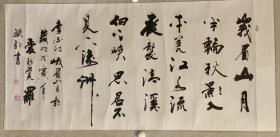 峩眉山月
半輪秋影入
平羌江水流
夜發清溪
向三峡思君不
見下渝州
李白詩峨眉山月歌